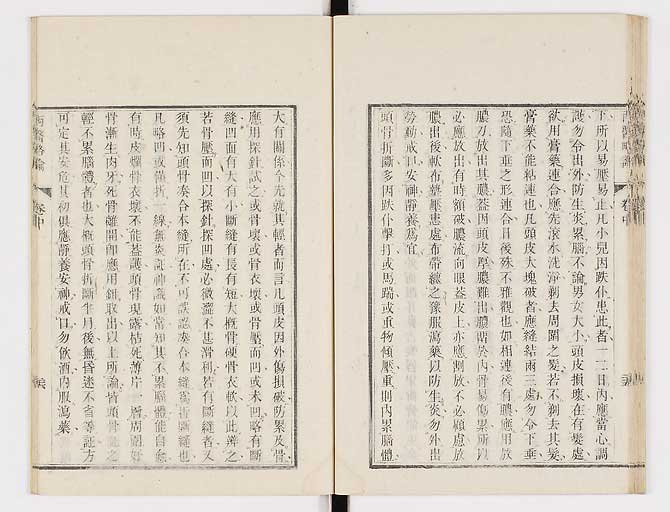 下所以易壓易止凡小兒因跌仆患此者一二日內應當心調
護勿令出外防生炎累腦不論男女大小頭皮損壞在有髮處
欲用膏藥連合應先滾水洗淨剃去周圍之髮若不剃去其髮
膏藥不能粘連也凡頭皮大塊破者應縫結兩三處勿令下垂
恐隨下垂之形連合日後殊不雅觀也如相連後有膿應用放
膿刀放出其膿蓋因頭皮厚膿難出膿瀦於內骨易傷累所以
必應放出有時額破膿流向眼蓋皮上亦應割放不必顧慮放
膿出後軟布墊壓患處布帶纏之豫服瀉藥以防生炎勿外出
勞動戒口安神靜養爲宜
頭骨折斷多因跌仆擊打或馬踹或重物傾壓重則內累腦體
西醫略論 卷中
大有關係今先就其輕者而言凡頭皮因外傷損破防累及骨
應用探針試之或骨壞或骨衣壞或骨壓而凹或未凹略有斷
縫凹面有大有小斷縫有長有短大概骨硬骨衣軟以此辨之
若骨壓而凹以探針探凹處必微澀不甚滑利若有斷縫者又
須先知頭骨湊合本縫所在不可誤認湊合本縫爲折斷縫也
凡略凹或僅折一線無炎証神識如常知其不累腦體能自愈
有時皮爛骨衣壞不能蓋護頭骨現露枯死薄片一層周圍好
骨漸生肉牙死骨離開即應用鉗取出以上所論皆頭骨
輕不累腦體者也大概頭骨折斷半月後無昏迷不省等証方
可定其安危其初俱應靜養安神戒口勿飲酒內服瀉藥
西醫略論 卷中